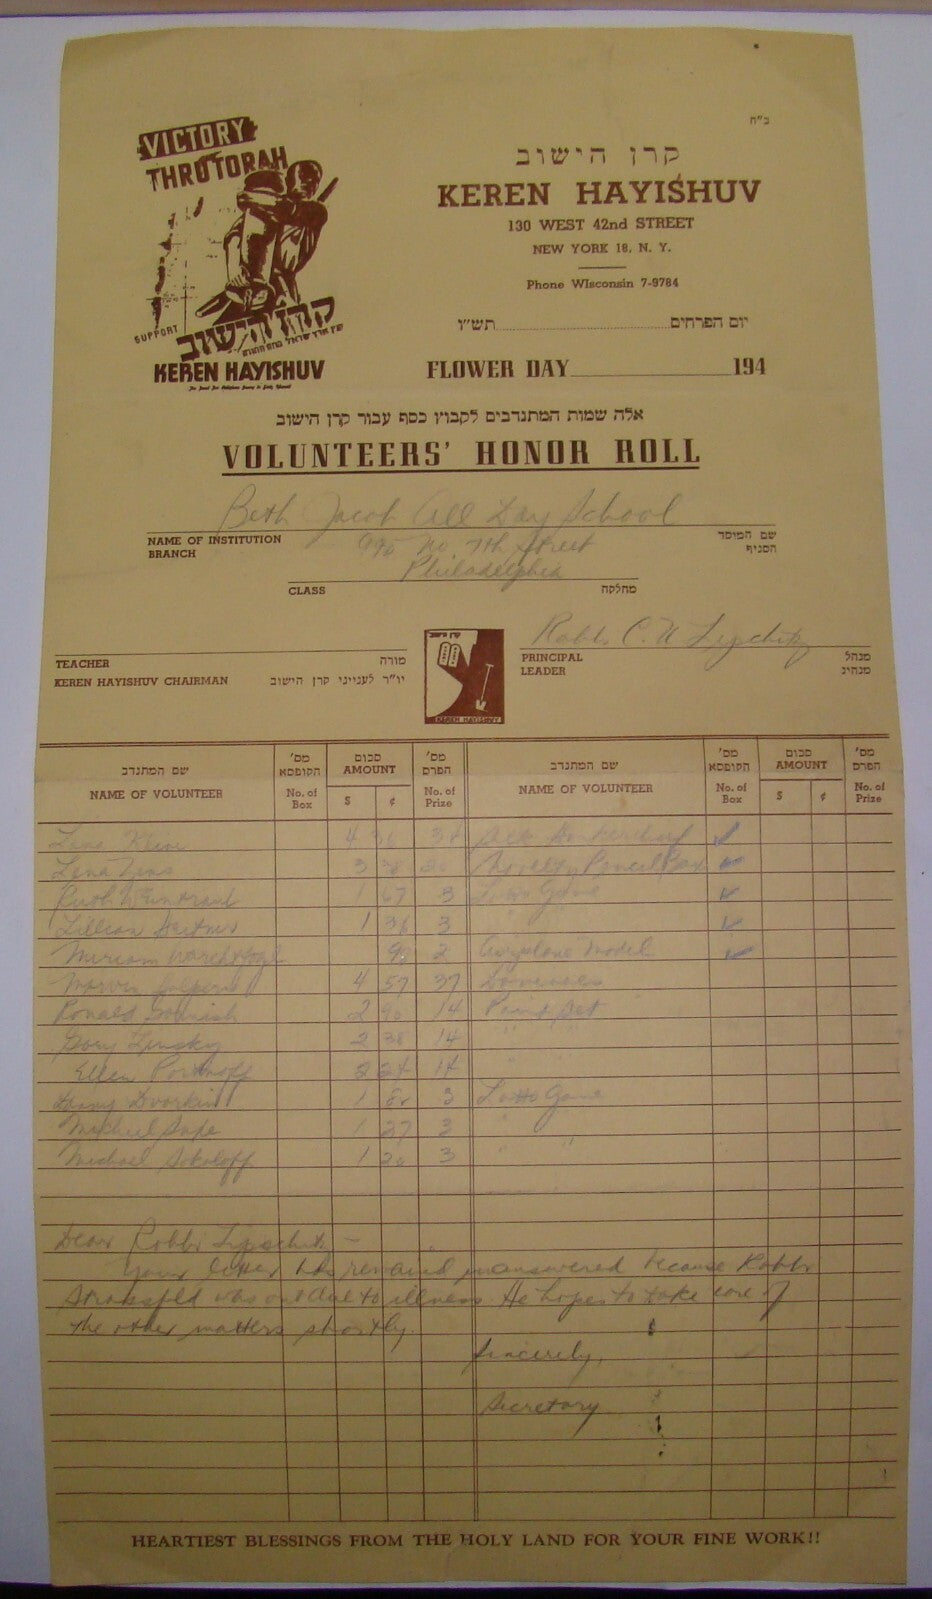 ב"ה
VICTORY
THRU TORAH
SUPPORT
קרן הישוב
KEREN HAYISHUV
קרן הישוב
KEREN HAYISHUV
130 WEST 42nd STREET
NEW YORK 18, N. Y.
Phone WIsconsin 7-9784
יום הפרחים תש"ו
FLOWER DAY 194
אלה שמות המתנדבים לקבוץ כסף עבור קרן הישוב
VOLUNTEERS' HONOR ROLL
Beth Jacob All Day School
NAME OF INSTITUTION שם המוסד
BRANCH הסניף
No. 7th Street
Philadelphia
CLASS מחלקה
Rabbi C. U. Lipschitz
TEACHER מורה
KEREN HAYISHUV CHAIRMAN יו"ר לעניני קרן הישוב
קרן הישוב
KEREN HAYISHUV
PRINCIPAL מנהל
LEADER מנהיג
שם המתנדב מס' הקופסא סכום מס' הפרס שם המתנדב מס' הקופסא סכום מס' הפרס
NAME OF VOLUNTEER No. of Box AMOUNT $ ¢ No. of Prize NAME OF VOLUNTEER No. of Box AMOUNT $ ¢ No. of Prize
Lena Klein 4 36
Lena Zins 3 38 Novelty Pencil Box
Ruth Weintraub 1 67 3 Lotto Game
Lillian 1 36 3 " "
Miriam 90 2 Airplane Model
Marvin Halpern 4 57 37 Dominoes
Ronald 2 90 14 Paint Set
Gary Linsky 2 38 14 " "
Ellen Portnoff 2 24 14 " "
Dvorkin 1 3 Lotto Game
Michael 1 27 3 " "
Michael Sokoloff 1 20 3 " "
Dear Rabbi Lipschitz –
Your letter has remained unanswered because Rabbi
Strassfeld was out due to illness. He hopes to take care of
the other matters shortly.
Sincerely,
Secretary
HEARTIEST BLESSINGS FROM THE HOLY LAND FOR YOUR FINE WORK!!